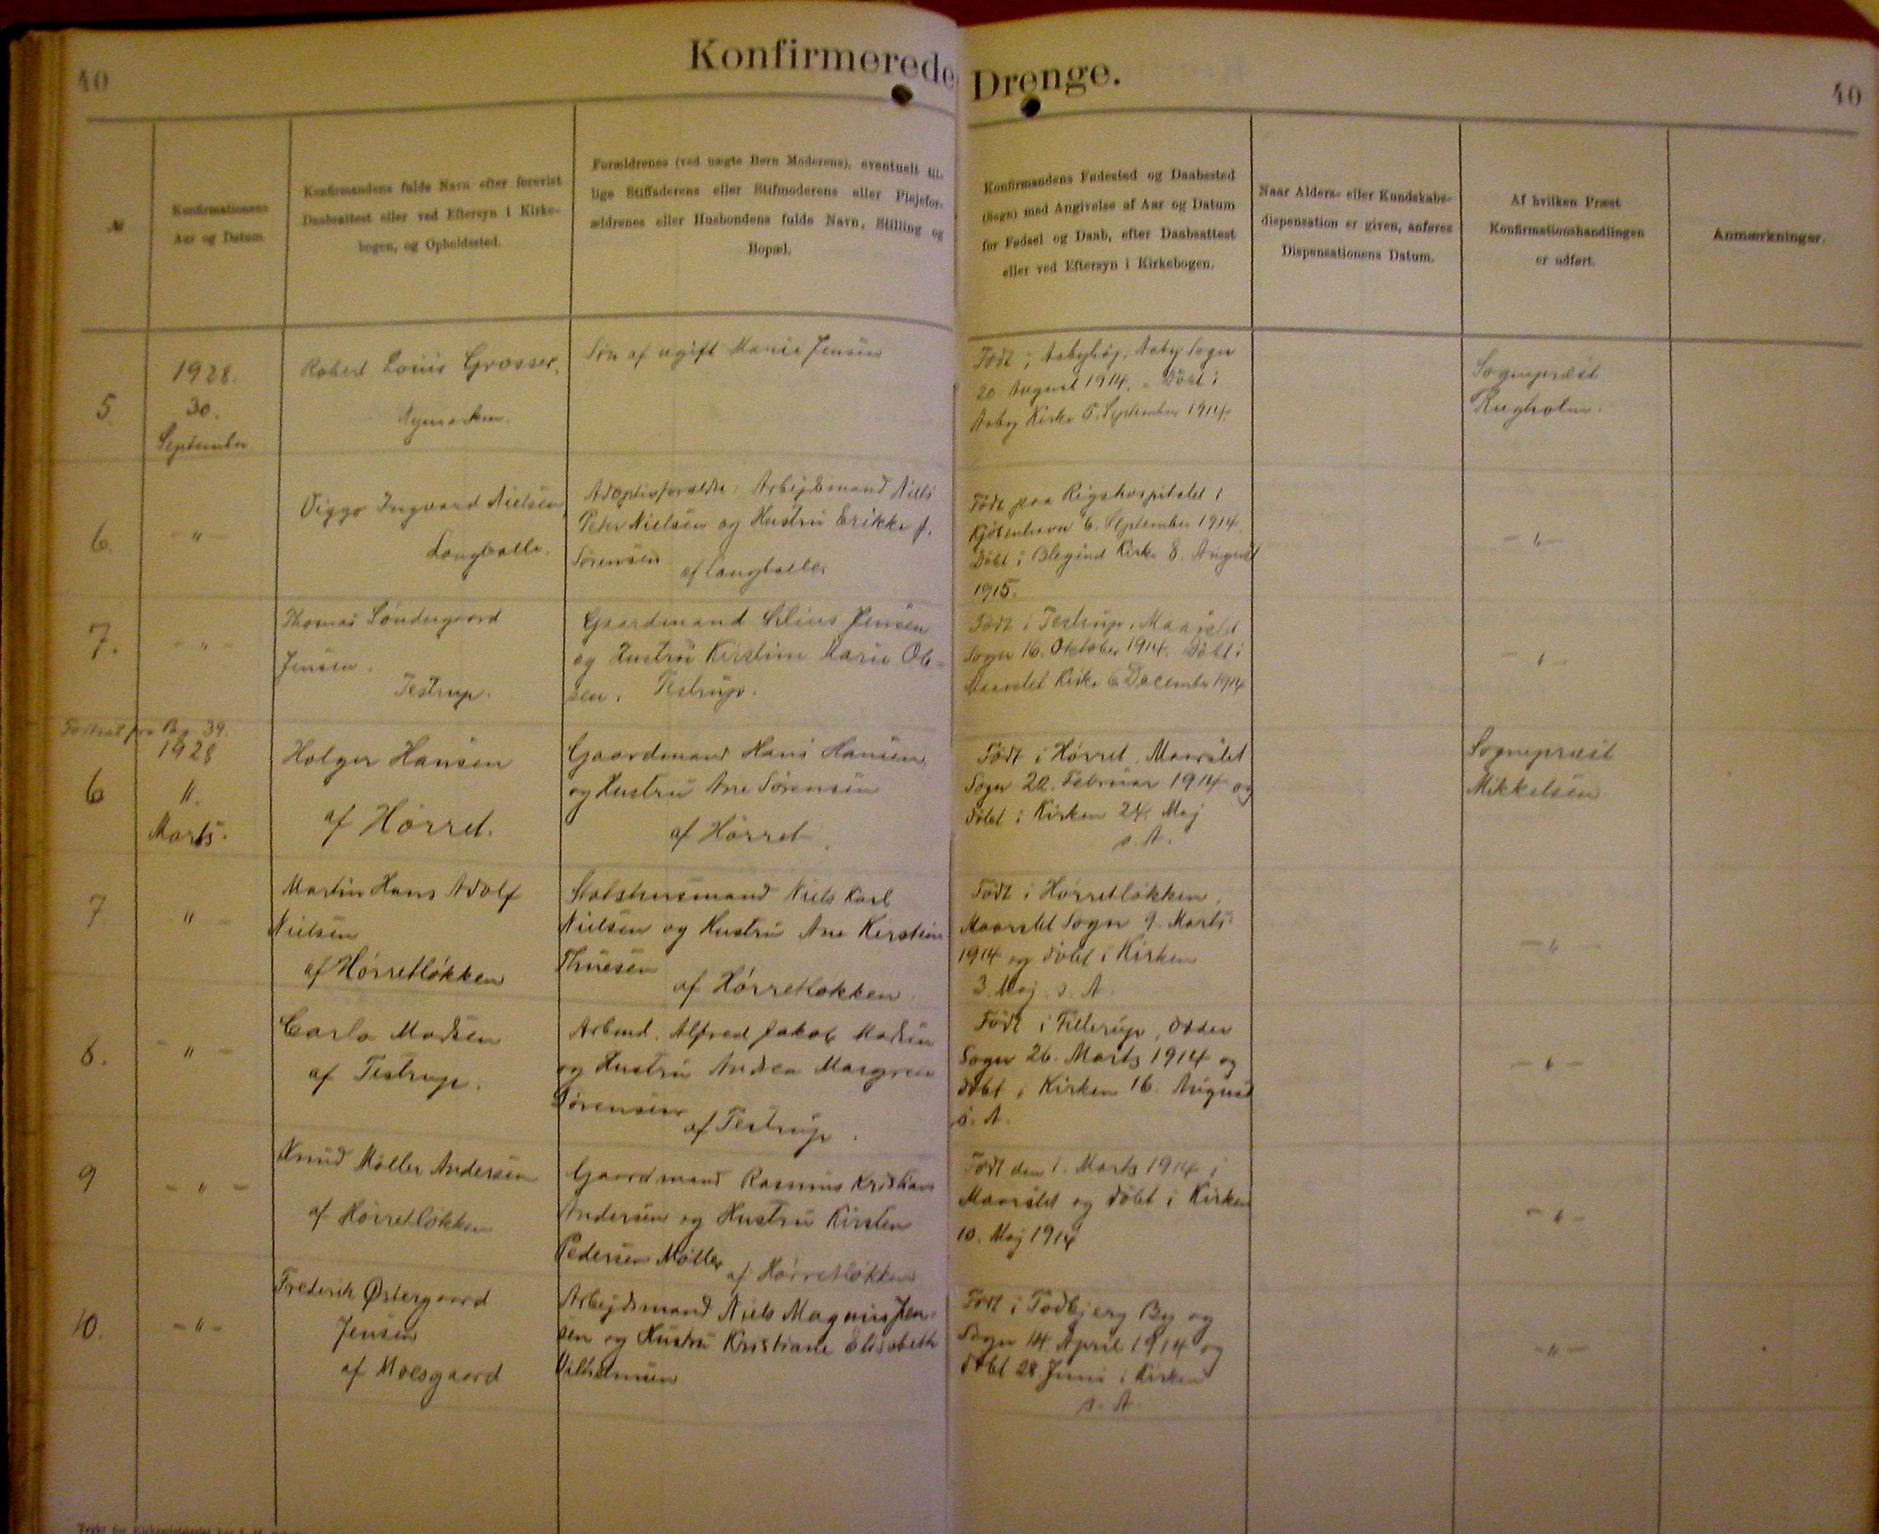 40
Konfirmerede Drenge.
40
№
Konfirmationens
Aar og Datum.
Konfirmandens fulde Navn efter forevist
Daabsattest eller ved Eftersyn i Kirke-
bogen, og Opholdssted.
Forældrenes (ved uægte Børn Moderens), eventuelt til-
lige Stiffaderens eller Stifmoderens eller Plejefor-
ældrenes eller Husbondens fulde Navn, Stilling og
Bopæl.
Konfirmandens Fødested og Daabssted
(Sogn) med Angivelse af Aar og Datum
for Fødsel og Daab, efter Daabsattest
eller ved Eftersyn i Kirkebogen.
Naar Alders- eller Kundskabs-
dispensation er given, anføres
Dispensationens Datum.
Af hvilken Præst
Konfirmationshandlingen
er udført.
Anmærkninger.
5
1928.
30.
September
Robert Louis Grosser,
Søn af ugift Marie Jensen
Født i Aabyhøj, Aaby Sogn
20 August 1914. Døbt i
Aaby Kirke 5. September 1914.
Sognepræst
6.
- " -
Viggo Ingvard Nielsen,
Langballe.
Adoptivforældre: Arbejdsmand Niels
Peter Nielsen og Hustru Erikke f.
Sørensen
af Langballe.
Født paa Rigshospitalet i
Kjøbenhavn 6. September 1914.
Døbt i Blegind Kirke 8. August
1915.
- " -
7.
- " -
Thomas Søndergaard
Jensen.
Testrup.
Gaardmand Jensen
og Hustru Kirstine Marie Ole-
sen. Testrup.
Født i Testrup, Maarslet
Sogn 16. Oktober 1914. Døbt i
Maarslet Kirke 6. December 1914
- " -
Fortsat fra Pag 39.
6
1928
11.
Marts.
Holger Hansen
af Hørret.
Gaardmand Hans Hansen
og Hustru Ane Sørensen
af Hørret
Født i Hørret, Maarslet
Sogn 22. Februar 1914 og
døbt i Kirken 24. Maj
s. A.
Sognepræst
Mikkelsen
7
" -
Martin Hans Adolf
Nielsen
af Hørretløkken
Statshusmand Niels Karl
Nielsen og Hustru Ane Kirstine
Thuesen
af Hørretløkken.
Født i Hørretløkken,
Maarslet Sogn 9. Marts
1914 og døbt i Kirken
3. Maj s. A.
- " -
8.
- " -
Carlo Madsen
af Testrup.
Arbmd. Alfred Jakob Madsen
og Hustru Andrea Margrete
Sørensen
af Testrup.
Født i Fillerup, Odder
Sogn 26. Marts 1914 og
døbt i Kirken 16. August
s. A.
- " -
9
- " -
Knud Møller Andersen
af Hørretløkken
Gaardmand Rasmus Kristian
Andersen og Hustru Kirsten
Pedersen Møller
af Hørretløkken
Født den 1. Marts 1914 i
Maarslet og døbt i Kirken
10. Maj 1914
- " -
10.
- " -
Frederik Østergaard
Jensen
af Moesgaard
Arbejdsmand Niels Magnus Jen-
sen og Hustru Kristiane Elisabeth
Vilhelmsen
Født i Todbjerg By og
Sogn 14. April 1914 og
døbt 28. Juni i Kirken
s. A.
- " -